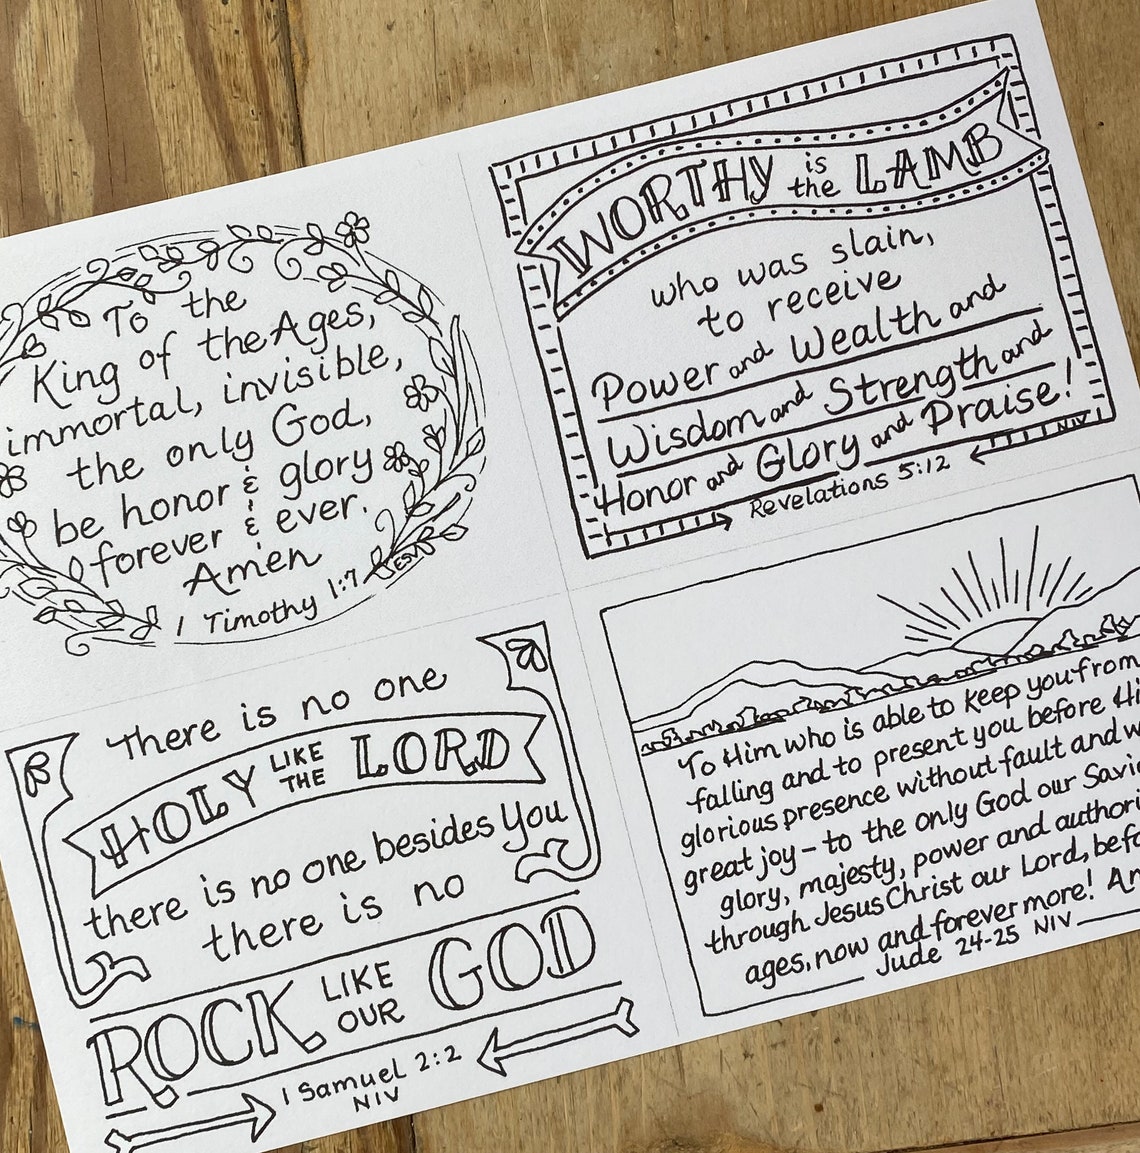 To the
King of the Ages,
immortal, invisible,
the only God,
be honor & glory
forever & ever.
Amen
1 Timothy 1:7 ESV
WORTHY is the LAMB
who was slain,
to receive
Power and Wealth and
Wisdom and Strength and
Honor and Glory and Praise!
Revelations 5:12 NIV
There is no one
HOLY LIKE THE LORD
there is no one besides You
there is no
ROCK LIKE OUR GOD
1 Samuel 2:2
NIV
To Him who is able to keep you from
falling and to present you before
glorious presence without fault and
great joy - to the only God our
glory, majesty, power and
through Jesus Christ our Lord,
ages, now and forever more!
Jude 24-25 NIV